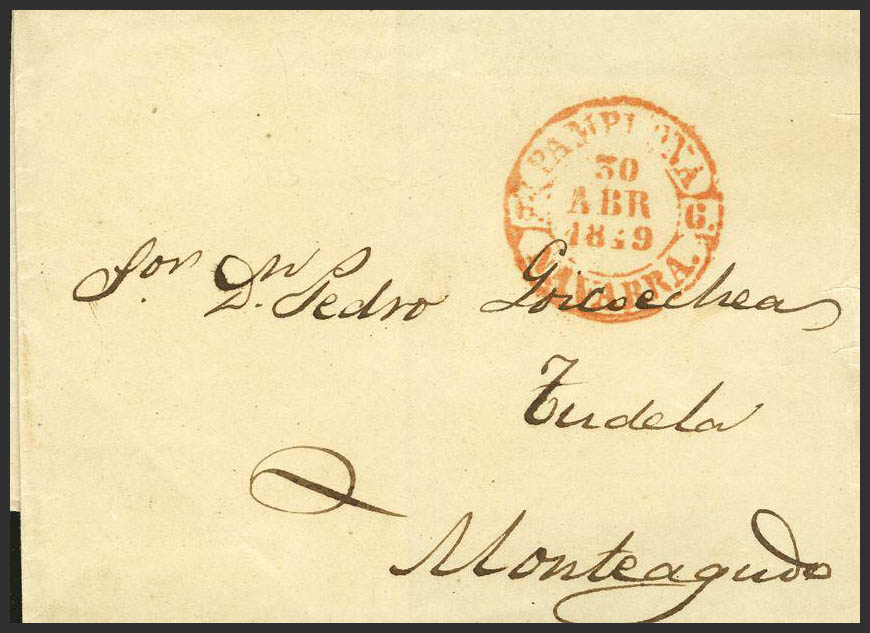 PAMPLONA
30
ABR
1849
G.
NAVARRA.
Sor. Dn. Pedro Goicoechea
Tudela
Monteagudo